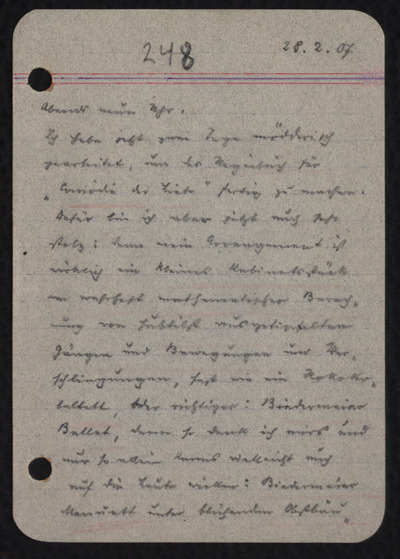 248
28.2.07
Abends neun Uhr.
Ich habe jetzt zwei Tage mörderisch
gearbeitet, um das Regiebuch für
„Comödie der Liebe" fertig zu machen.
Dafür bin ich aber jetzt auch sehr
stolz: denn mein Arrangement ist
wirklich ein kleines Kabinetsstück
an wahrhaft mathematischer Berech-
nung von subtilst ausgetüpfelten
Gängen und Bewegungen und Ver-
schlingungen, fast wie ein Rokoko-
ballett, oder richtiger: Biedermeier
Ballet, denn so denk ich mirs und
nur so allein kanns vielleicht auch
auf die Leute wirken: Biedermeier
Menuett unter blühenden Obstbäu-